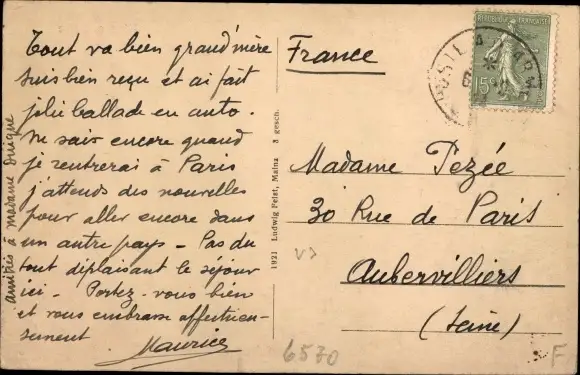 Tout va bien grand'mère
suis bien reçu et ai fait
jolie ballade en auto.
ne sais encore quand
je rentrerai à Paris
j'attends des nouvelles
pour aller encore dans
un autre pays - Pas du
tout déplaisant le séjour
ici - Portez-vous bien
et vous embrasse affectueu-
sement
Maurice
amitiés à madame
1921 Ludwig Feist, Mainz
gesch.
France
REPUBLIQUE FRANÇAISE
15
Madame Pezée
30 Rue de Paris
Aubervilliers
(Seine)
6530
F